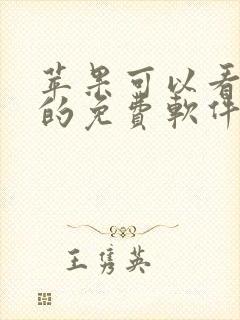 苹果可以看
的免费軟件
王隽英